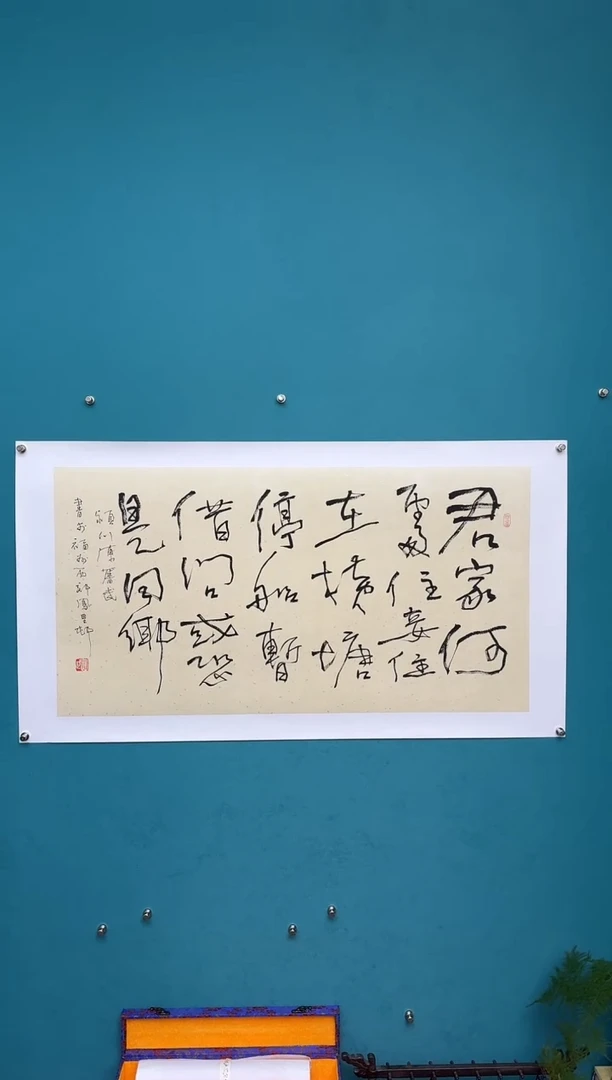 君家何
處住妾住
在橫塘
停船暫
借問或恐
是同鄉
書於福州西郊鳳里